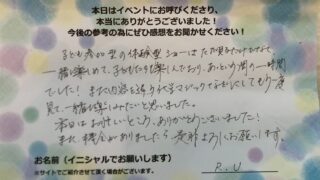 本日はイベントにお呼びくださり、
本当にありがとうございました！
今後の参考の為にぜひ感想をお聞かせください！
子ども参加型の体験型ショーはただ見るだけでなく、
一緒に楽しめて、子どもたちも楽しんでおり、あっという間の一時間
でした！また内容を違う マジックなどにしてもう一度
見て一緒に楽しみたいと思いました。
本日はお忙しいところ、ありがとうございました！
また、機会がありましたら、是非よろしくお願いします。
お名前（イニシャルでお願いします）
R.U
※サイトでご紹介させて頂く場合がございます。